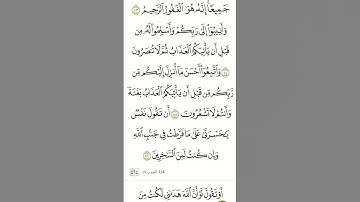 جَمِيعًا ۚ إِنَّهُ هُوَ ٱلْغَفُورُ ٱلرَّحِيمُ ۝٥٣
وَأَنِيبُوٓا۟ إِلَىٰ رَبِّكُمْ وَأَسْلِمُوا۟ لَهُۥ مِن
قَبْلِ أَن يَأْتِيَكُمُ ٱلْعَذَابُ ثُمَّ لَا تُنصَرُونَ
۝٥٤ وَٱتَّبِعُوٓا۟ أَحْسَنَ مَآ أُنزِلَ إِلَيْكُم مِّن
رَّبِّكُم مِّن قَبْلِ أَن يَأْتِيَكُمُ ٱلْعَذَابُ بَغْتَةً
وَأَنتُمْ لَا تَشْعُرُونَ ۝٥٥ أَن تَقُولَ نَفْسٌ
يَـٰحَسْرَتَىٰ عَلَىٰ مَا فَرَّطتُ فِى جَنۢبِ ٱللَّهِ
وَإِن كُنتُ لَمِنَ ٱلسَّـٰخِرِينَ ۝٥٦
٤٦٤
أَوْ تَقُولَ لَوْ أَنَّ ٱللَّهَ هَدَىٰنِى لَكُنتُ مِنَ